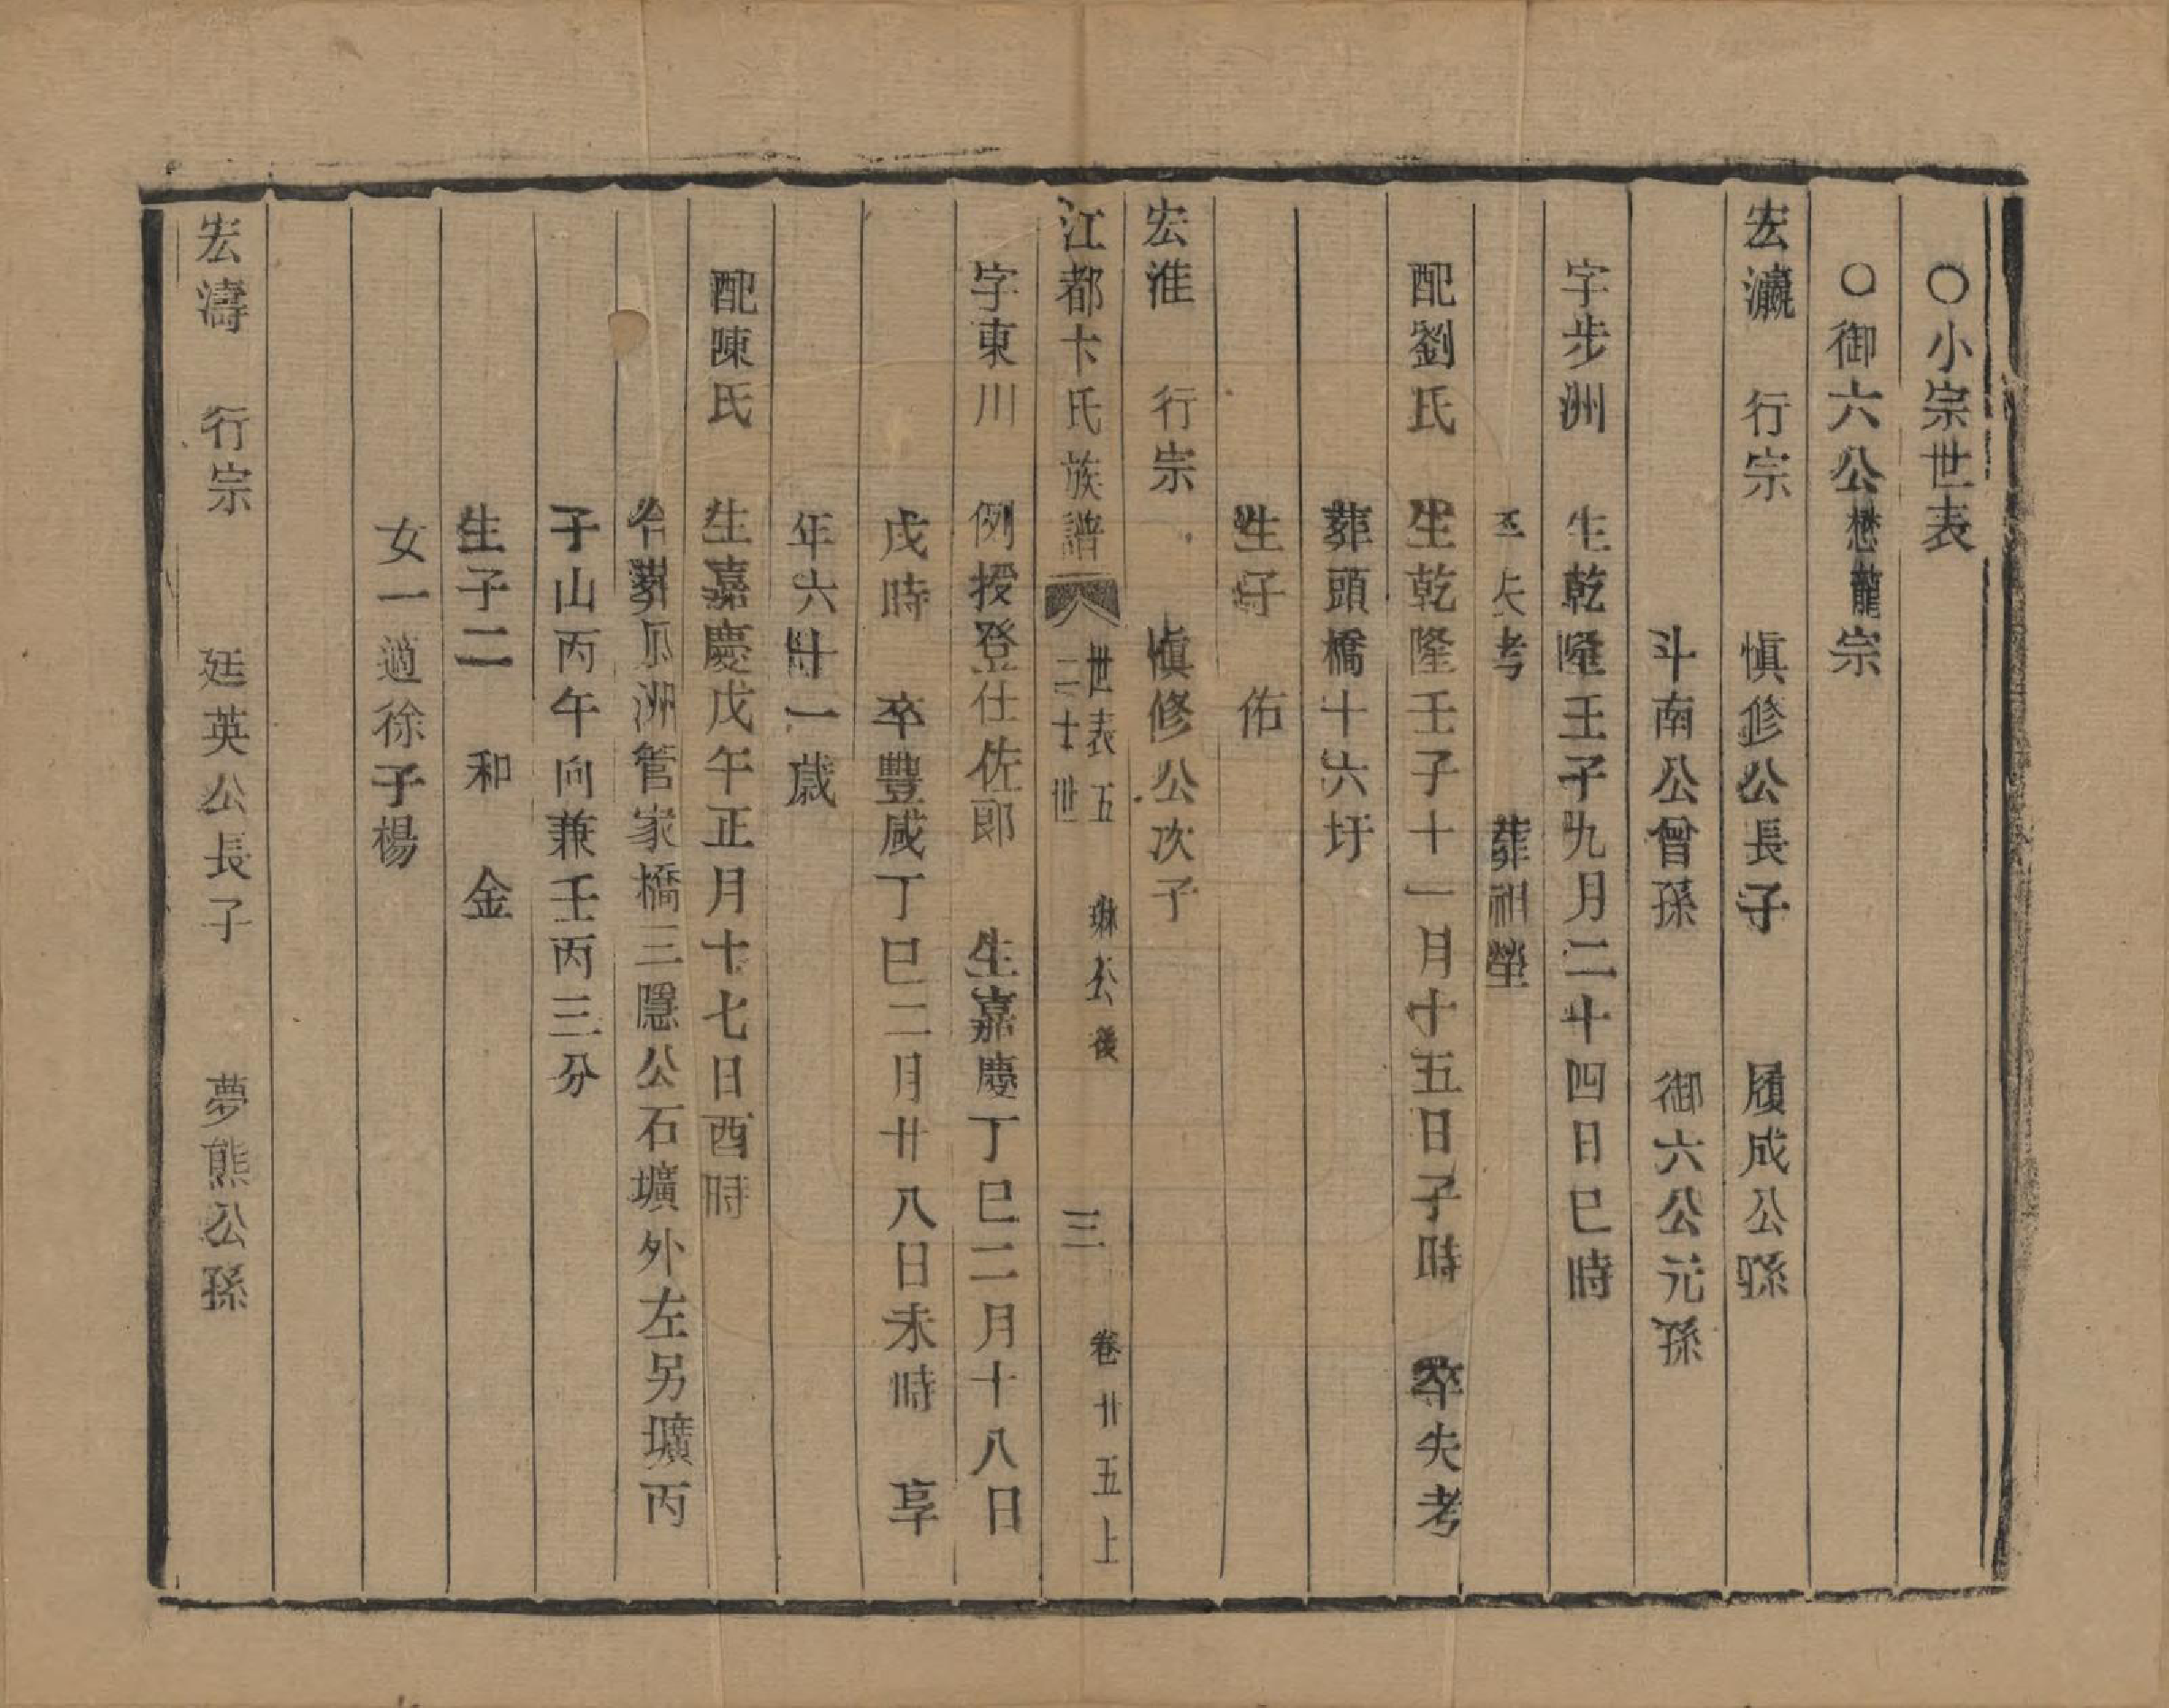 ○小宗世表
○御六公懋龍宗
宏瀛 行宗 愼修公長子 履成公孫
斗南公曾孫 御六公元孫
字步洲 生乾隆壬子九月二十四日巳時
卒失考 葬祖塋
配劉氏 生乾隆壬子十一月十五日子時 卒失考
葬頭橋十六圩
生子 佑
宏淮 行宗 愼修公次子
江都卞氏族譜 世表五 二十世 琳公後 三 卷廿五上
字東川 例授登仕佐郎 生嘉慶丁巳二月十八日
戌時 卒豐咸丁巳二月廿八日未時 享
年六十一歲
配陳氏 生嘉慶戊午正月十七日酉時
合葬瓜洲管家橋三隱公石壙外左另壙丙
子山丙午向兼壬丙三分
生子二 和 金
女一適徐子楊
宏濤 行宗 廷英公長子 夢熊公孫